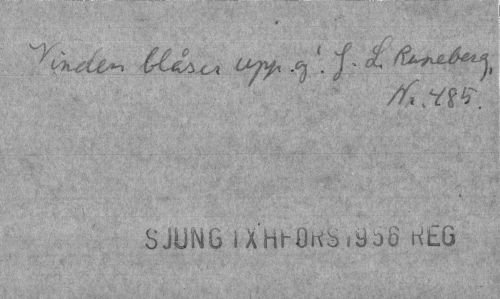 Vinden blåser upp.g! J. L. Runeberg,
Nr. 485.
SJUNG IX HFORS 1956 REG